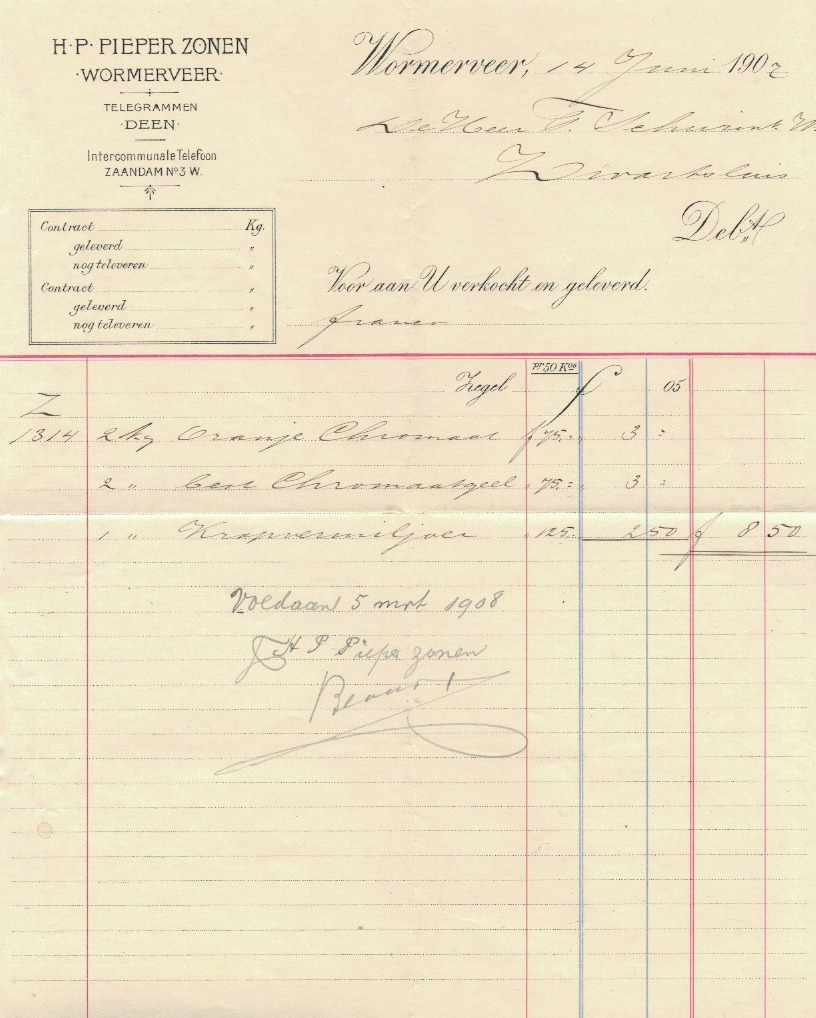 H·P· PIEPER ZONEN
·WORMERVEER·
TELEGRAMMEN
·DEEN·
Intercommunale Telefoon
ZAANDAM No 3 W.
Wormerveer, 14 Juni 1907
De Heer F. Schurink
Zwartsluis
Debt
Contract Kg.
geleverd "
nog te leveren "
Contract "
geleverd "
nog te leveren "
Voor aan U verkocht en geleverd.
franco
pr 50 Kos
Zegel f 05
Z
1314 2 kg Oranje Chromaat f 75.= " 3 =
2 " best Chromaatgeel " 75.= " 3 =
1 " Krapvermiljoen " 125. 2 50 f 8 50
Voldaan 5 mrt 1908
H P Pieper zonen